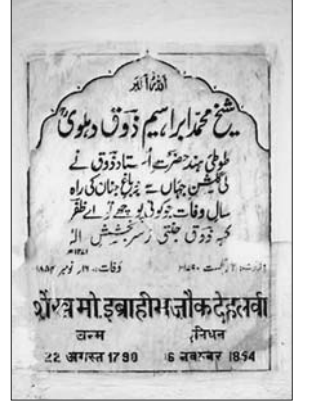 اللہ اکبر
شیخ محمد ابراہیم ذوق دہلویؒ
طوطیٔ ہند حضرتِ اُستاد ذوق نے
لی گلشنِ جہاں سے باغِ جناں کی راہ
سالِ وفات جو کوئی پوچھے تو اے ظفر
کہہ ذوق جنتی ز سرِ بخششِ الٰہ
اگست ۱۷۹۰ وفات: ۱۶؍ نومبر ۱۸۵۴
शेख मो.इब्राहीम जौक देहलवी
जन्म निधन
22 अगस्त 1790 6 नवम्बर 1854